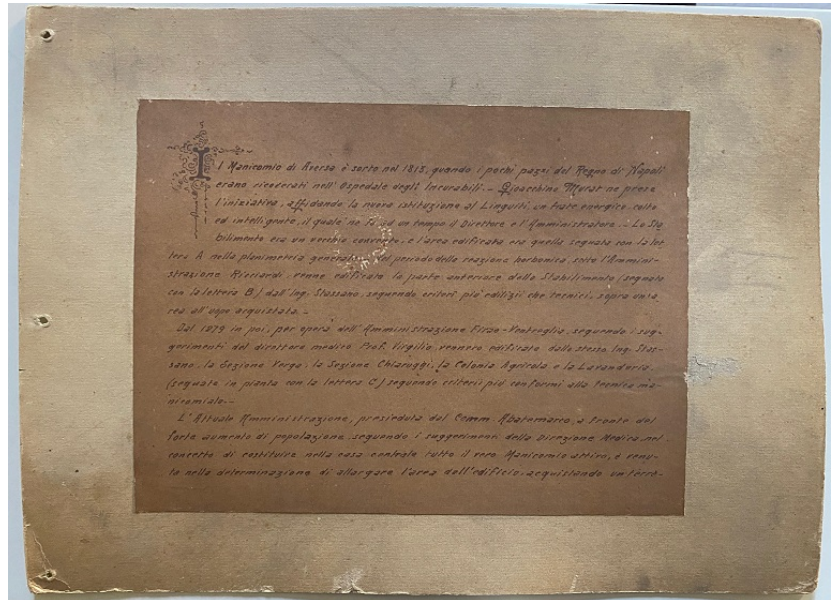 Il Manicomio di Aversa è sorto nel 1813, quando i pochi pazzi del Regno di Napoli
erano ricoverati nell'Ospedale degli Incurabili. - Gioacchino Murat ne prese
l'iniziativa, affidando la nuova istituzione al Linguiti, un frate energico colto
ed intelligente, il quale ne fu ad un tempo il Direttore e l'Amministratore. - Lo Sta
bilimento era un vecchio convento, e l'area edificata era quella segnata con la let
tera A nella planimetria generale. del periodo della reazione borbonica, sotto l'Ammini-
strazione Ricciardi, venne edificata la parte anteriore dello Stabilimento (segnata
con la lettera B) dall'Ing. Stassano, seguendo criteri più edilizii che tecnici, sopra un'a
rea all'uopo acquistata. -
Dal 1879 in poi, per opera dell'Amministrazione Firao-Ventroglia, seguendo i sug-
gerimenti del direttore medico Prof. Virgilio, vennero edificate dallo stesso Ing. Stas-
sano, la Sezione Verga, la Sezione Chiarugi, la Colonia Agricola e la Lavanderia.
(segnate in pianta con la lettera C) seguendo criterii più conformi alla tecnica ma
nicomiale. -
L'Attuale Amministrazione, presieduta dal Comm. Abatemarco, a fronte del
forte aumento di popolazione, seguendo i suggerimenti della Direzione Medica, nel
concetto di costituire nella casa centrale tutto il vero Manicomio attivo, è venu-
ta nella determinazione di allargare l'area dell'edificio, acquistando un terre-